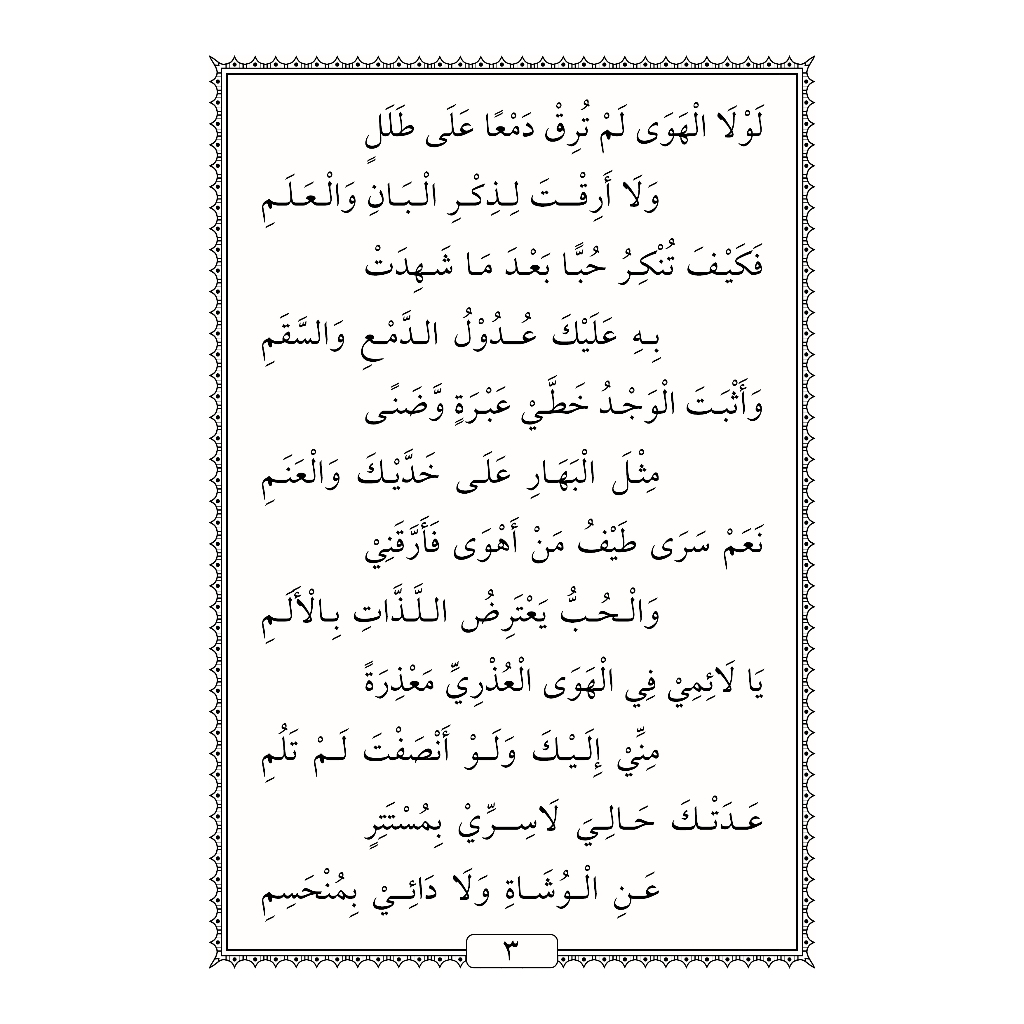 لَوْلَا الْهَوَى لَمْ تُرِقْ دَمْعًا عَلَى طَلَلٍ
وَلَا أَرِقْتَ لِذِكْرِ الْبَانِ وَالْعَلَمِ
فَكَيْفَ تُنْكِرُ حُبًّا بَعْدَ مَا شَهِدَتْ
بِهِ عَلَيْكَ عُدُوْلُ الدَّمْعِ وَالسَّقَمِ
وَأَثْبَتَ الْوَجْدُ خَطَّيْ عَبْرَةٍ وَّضَنًى
مِثْلَ الْبَهَارِ عَلَى خَدَّيْكَ وَالْعَنَمِ
نَعَمْ سَرَى طَيْفُ مَنْ أَهْوَى فَأَرَّقَنِيْ
وَالْحُبُّ يَعْتَرِضُ اللَّذَّاتِ بِالْأَلَمِ
يَا لَائِمِيْ فِي الْهَوَى الْعُذْرِيِّ مَعْذِرَةً
مِنِّيْ إِلَيْكَ وَلَوْ أَنْصَفْتَ لَمْ تَلُمِ
عَدَتْكَ حَالِيَ لَاسِرِّيْ بِمُسْتَتِرٍ
عَنِ الْوُشَاةِ وَلَا دَائِيْ بِمُنْحَسِمِ
٣